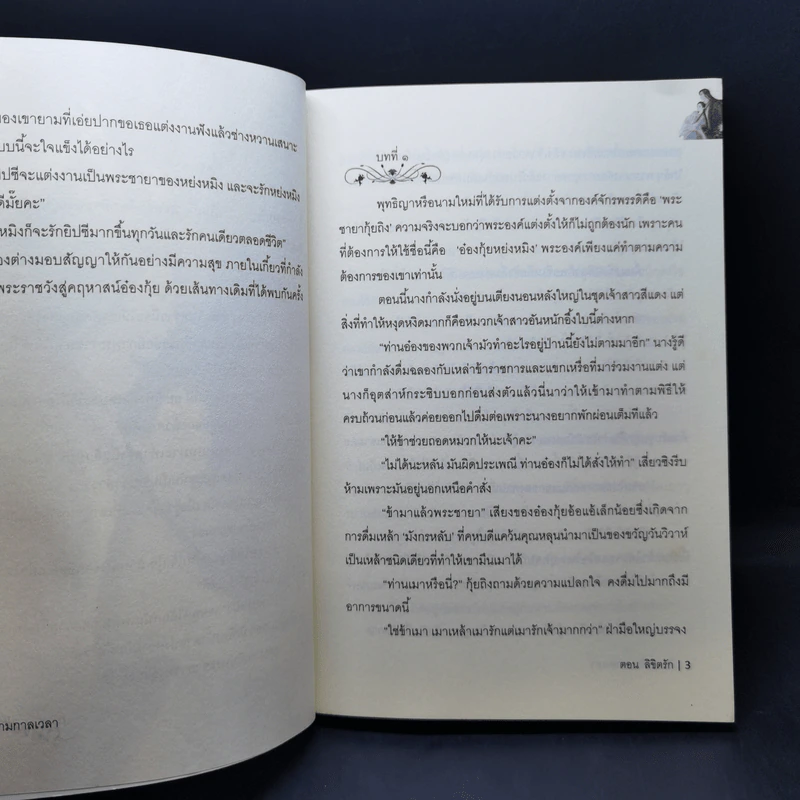 องเขายามที่เอ่ยปากขอเธอแต่งงานฟังแล้วช่างหวานเสนาะ
บบนี้จะใจแข็งได้อย่างไร
ปซีจะแต่งงานเป็นพระชายาของหย่งหมิง และจะรักหย่งหมิง
ดีมั้ยคะ”
หมิงก็จะรักยิปซีมากขึ้นทุกวันและรักคนเดียวตลอดชีวิต”
องต่างมอบสัญญาให้กันอย่างมีความสุข ภายในเกี้ยวที่กำลัง
พระราชวังสู่คฤหาสน์อ๋องกุ้ย ด้วยเส้นทางเดิมที่ได้พบกันครั้ง
ามกาลเวลา
บทที่ ๑
พุทธิญาหรือนามใหม่ที่ได้รับการแต่งตั้งจากองค์จักรพรรดิคือ ‘พระ
ชายากุ้ยถิง’ ความจริงจะบอกว่าพระองค์แต่งตั้งให้ก็ไม่ถูกต้องนัก เพราะคน
ที่ต้องการให้ใช้ชื่อนี้คือ ‘อ๋องกุ้ยหย่งหมิง’ พระองค์เพียงแค่ทำตามความ
ต้องการของเขาเท่านั้น
ตอนนี้นางกำลังนั่งอยู่บนเตียงนอนหลังใหญ่ในชุดเจ้าสาวสีแดง แต่
สิ่งที่ทำให้หงุดหงิดมากก็คือหมวกเจ้าสาวอันหนักอึ้งใบนี้ต่างหาก
“ท่านอ๋องของพวกเจ้ามัวทำอะไรอยู่ป่านนี้ยังไม่ตามมาอีก” นางรู้ดี
ว่าเขากำลังดื่มฉลองกับเหล่าข้าราชการและแขกเหรื่อที่มาร่วมงานแต่ง แต่
นางก็อุตส่าห์กระซิบบอกก่อนส่งตัวแล้วนี่นาว่าให้เข้ามาทำตามพิธีให้
ครบถ้วนก่อนแล้วค่อยออกไปดื่มต่อเพราะนางอยากพักผ่อนเต็มทีแล้ว
“ให้ข้าช่วยถอดหมวกให้นะเจ้าคะ”
“ไม่ได้นะหลัน มันผิดประเพณี ท่านอ๋องก็ไม่ได้สั่งให้ทำ” เสี่ยวชิงรีบ
ห้ามเพราะมันอยู่นอกเหนือคำสั่ง
“ข้ามาแล้วพระชายา” เสียงของอ๋องกุ้ยอ้อแอ้เล็กน้อยซึ่งเกิดจาก
การดื่มเหล้า ‘มังกรหลับ’ ที่คหบดีแคว้นคุณหลุนนำมาเป็นของขวัญวันวิวาห์
เป็นเหล้าชนิดเดียวที่ทำให้เขามึนเมาได้
“ท่านเมาหรือนี่?” กุ้ยถิงถามด้วยความแปลกใจ คงดื่มไปมากถึงมี
อาการขนาดนี้
“ใช่ข้าเมา เมาเหล้าเมารักแต่เมารักเจ้ามากกว่า” ฝ่ามือใหญ่บรรจง
ตอน ลิขิตรัก | 3